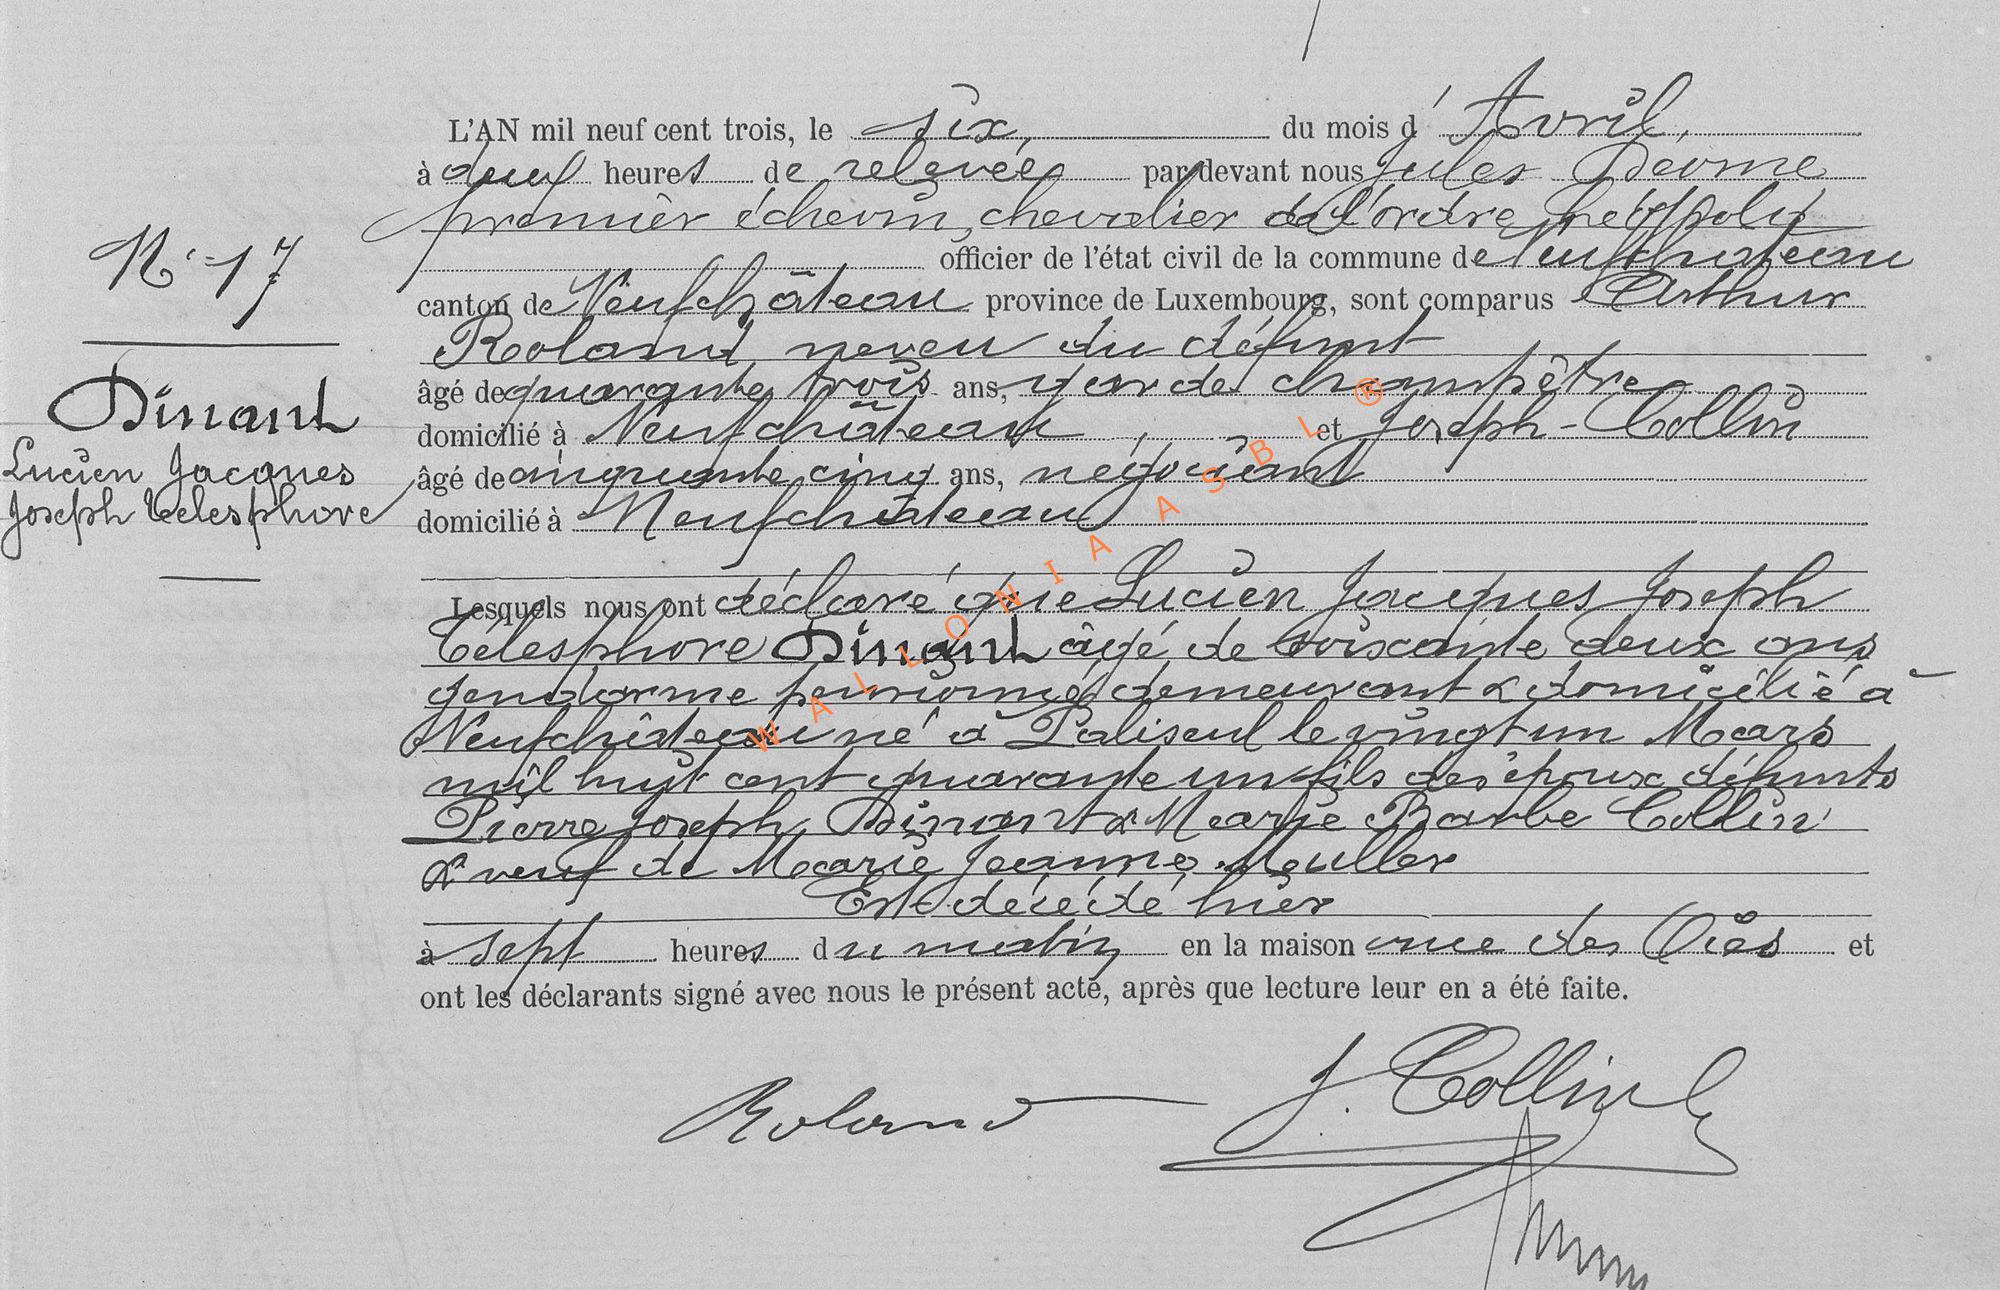 L'AN mil neuf cent trois, le six, du mois d'Avril,
à deux heures de relevée par devant nous Jules
premier échevin, chevalier de l'ordre Léopold
officier de l'état civil de la commune de Neufchâteau
canton de Neufchâteau province de Luxembourg, sont comparus Arthur
Roland neveu du défunt
âgé de quarante trois ans, garde champêtre
domicilié à Neufchâteau et Joseph Collin
âgé de cinquante cinq ans, négociant
domicilié à Neufchâteau
N° 17
Dinant
Lucien Jacques
Joseph Télesphore
Lesquels nous ont déclaré que Lucien Jacques Joseph
Télesphore Dinant âgé de soixante deux ans
gendarme pensionné demeurant & domicilié à
Neufchâteau né à Paliseul le vingt un Mars
mil huit cent quarante un fils des époux défunts
Pierre Joseph Dinant & Marie Barbe Collin
& veuf de Marie Jeanne Muller
Est décédé hier
à sept heures du matin en la maison rue des Oies et
ont les déclarants signé avec nous le présent acte, après que lecture leur en a été faite.
Roland J. Collin
WALLONIA ASBL ®